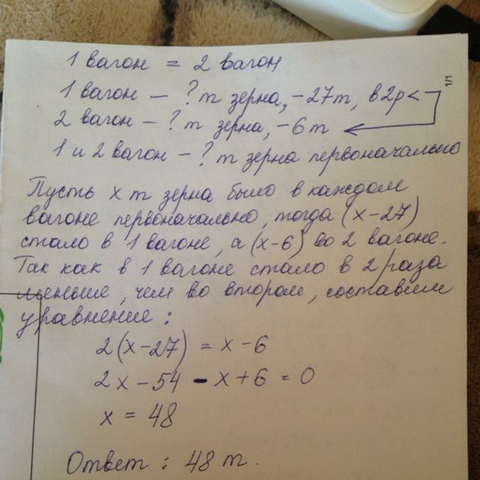 1 вагон = 2 вагон
1 вагон — ? т зерна, -27т, в 2р <
2 вагон — ? т зерна, -6 т
1 и 2 вагон — ? т зерна первоначально
Пусть x т зерна было в каждом
вагоне первоначально, тогда (x-27)
стало в 1 вагоне, а (x-6) во 2 вагоне.
Так как в 1 вагоне стало в 2 раза
меньше, чем во втором, составим
уравнение:
2(x-27) = x-6
2x-54 - x+6 = 0
x = 48
Ответ: 48 т.